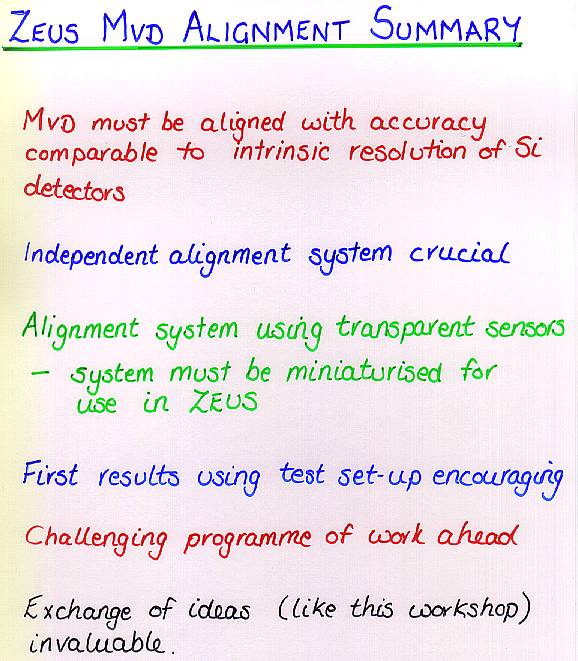 ZEUS MVD ALIGNMENT SUMMARY
MVD must be aligned with accuracy
comparable to intrinsic resolution of Si
detectors
Independent alignment system crucial
Alignment system using transparent sensors
– system must be miniaturised for
use in ZEUS
First results using test set-up encouraging
Challenging programme of work ahead
Exchange of ideas (like this workshop)
invaluable.